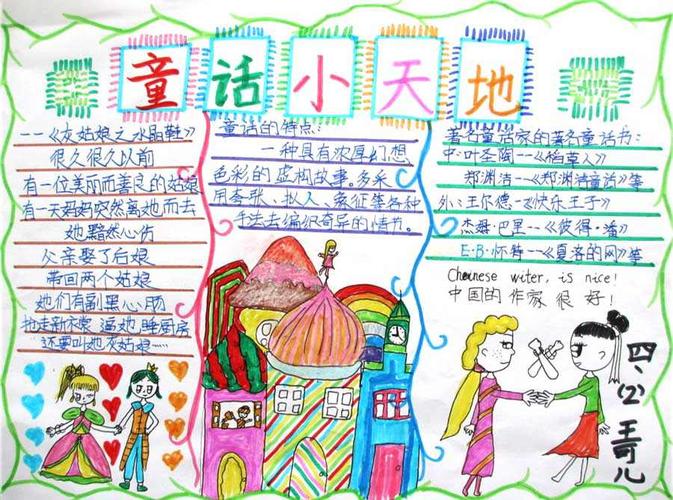 童话小天地
--《灰姑娘之水晶鞋》
很久很久以前
有一位美丽而善良的姑娘
有一天妈妈突然离她而去
她黯然心伤
父亲娶了后娘
带回两个姑娘
她们有副黑心肠
抢走新衣裳逼她睡厨房
还要叫她灰姑娘……
童话的特点:
一种具有浓厚幻想
色彩的虚构故事。多采
用夸张、拟人、象征等各种
手法去编织奇异的情节。
著名童话家的著名童话书:
中:叶圣陶--《稻草人》
郑渊洁--《郑渊洁童话》等
外:王尔德--《快乐王子》
杰姆·巴里--《彼得·潘》
E·B·怀特--《夏洛的网》等
Cheinese witer, is nice!
中国的作家很好!
四、(2)王可儿